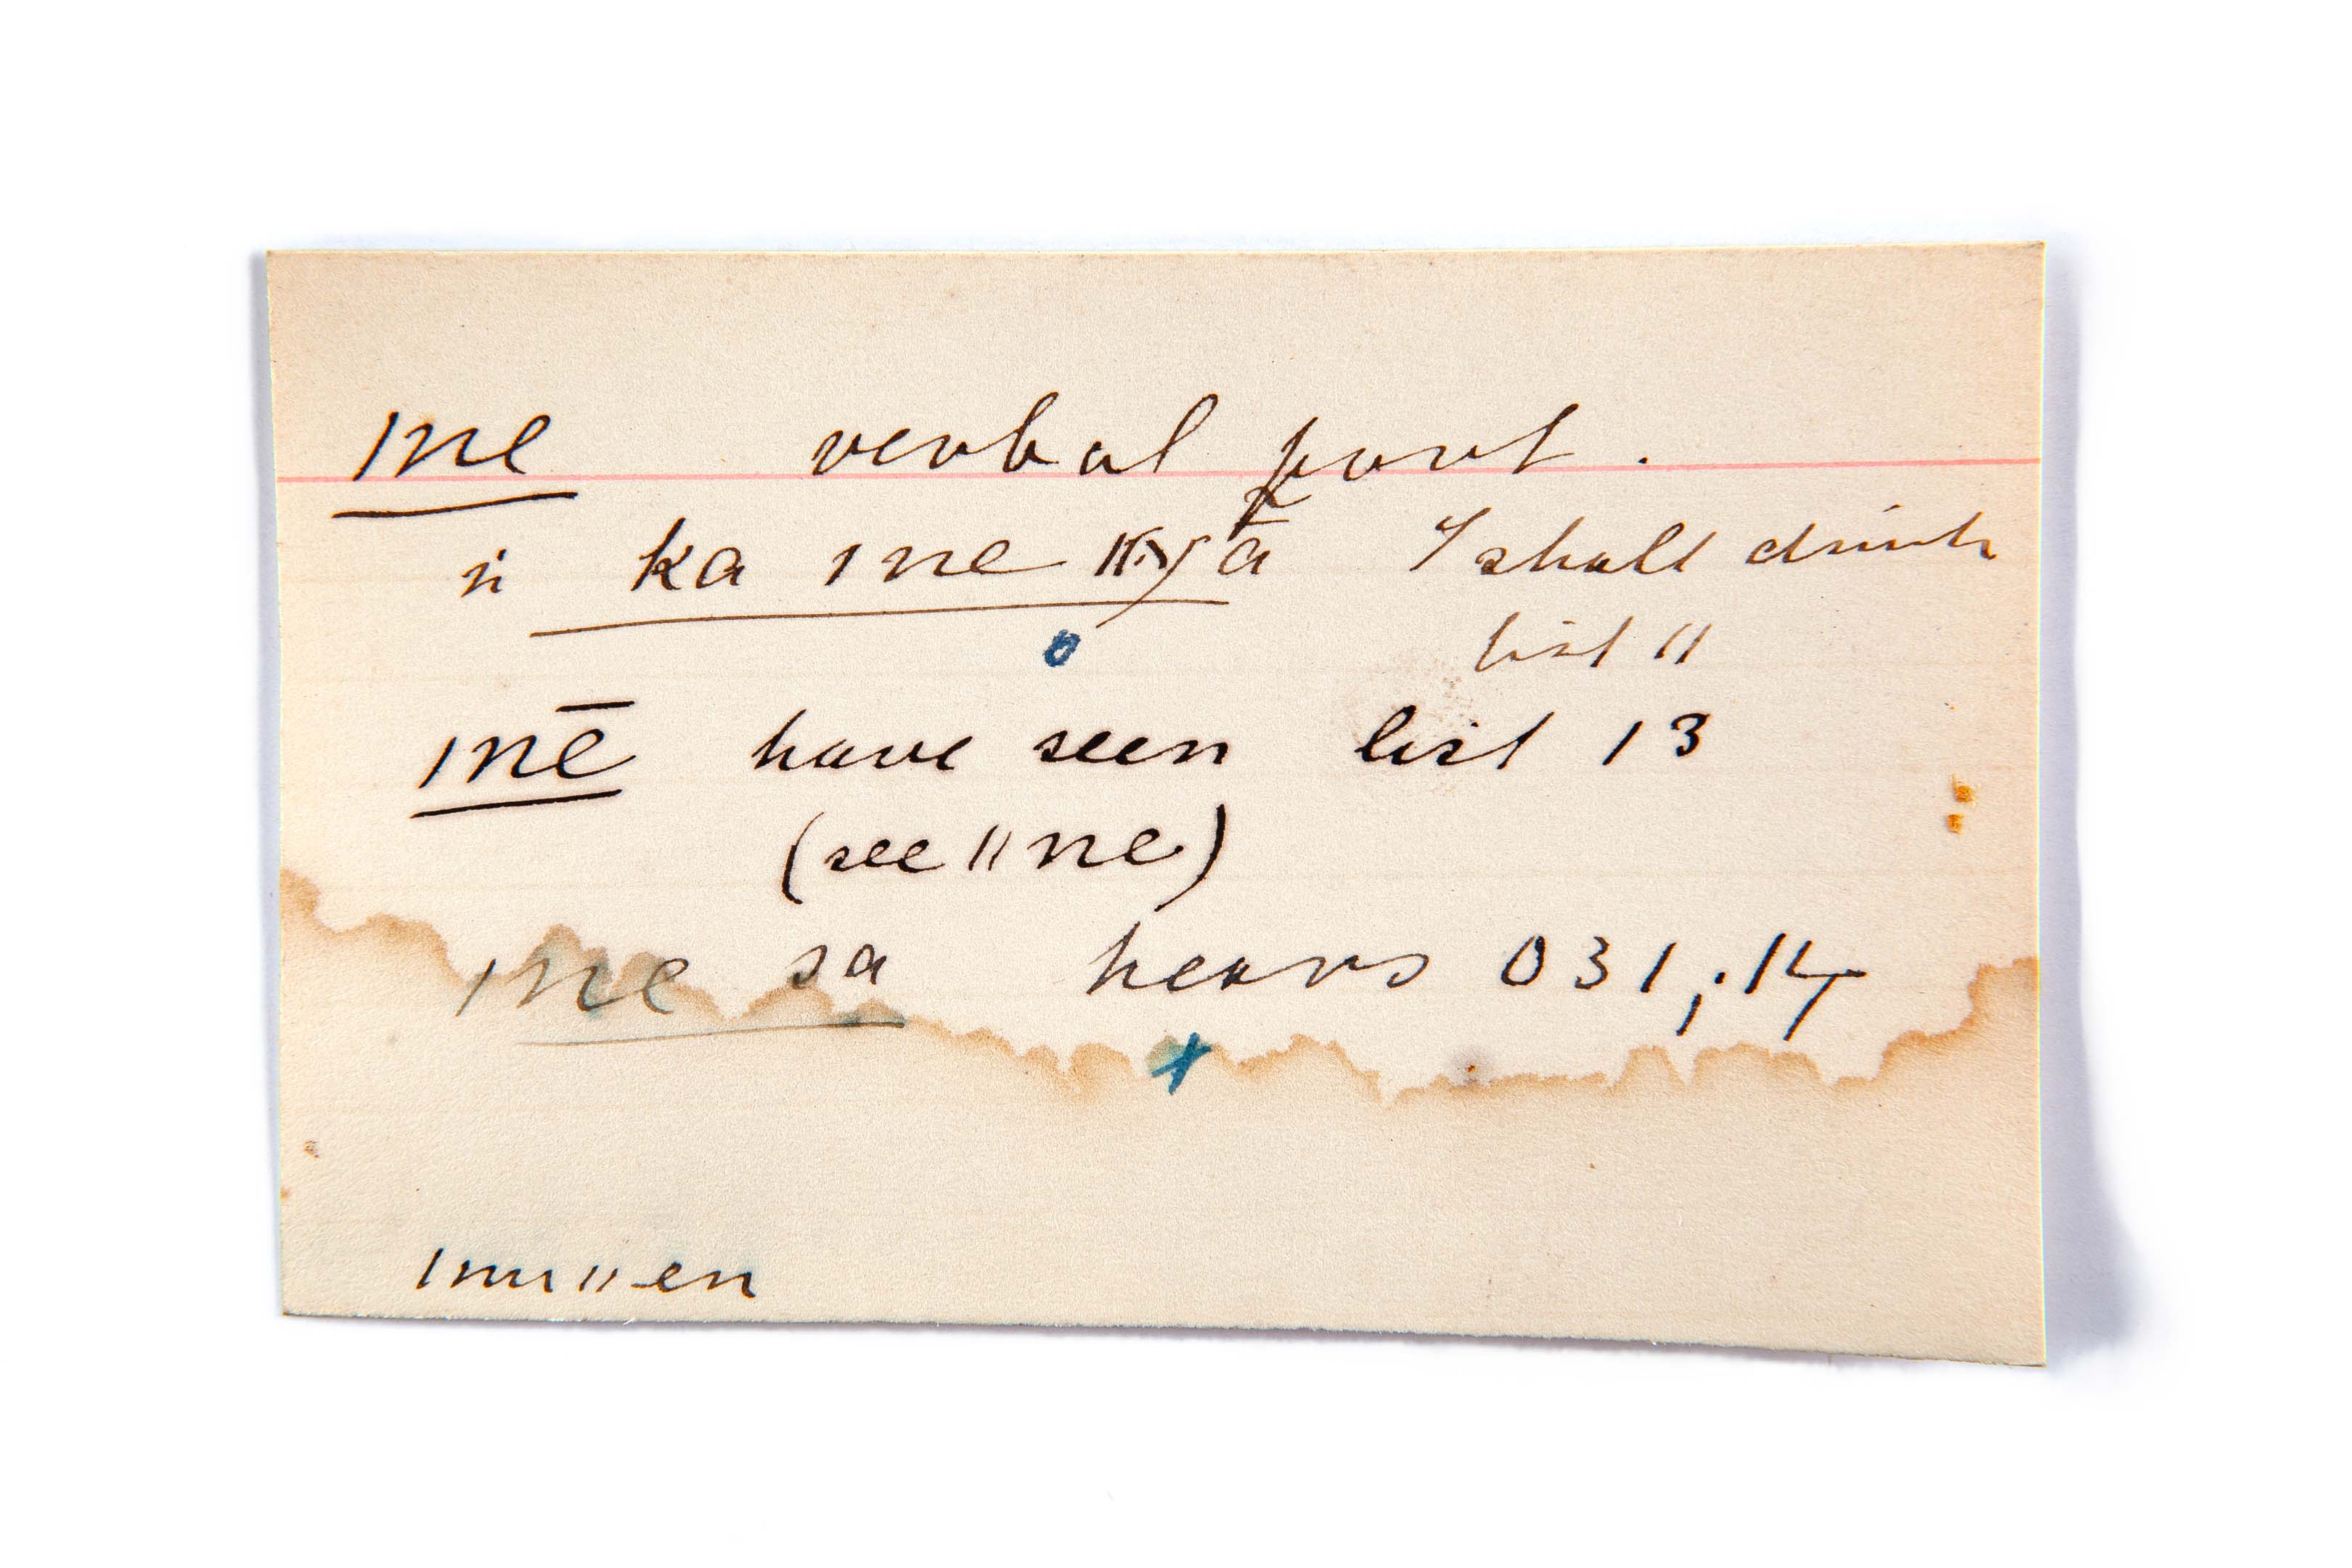 /ne verbal part.
n ka /ne //k>xā I shall drink
list 11
/nē have seen list 13
(see //ne)
/ne sa hears 031,.14
/nu//en